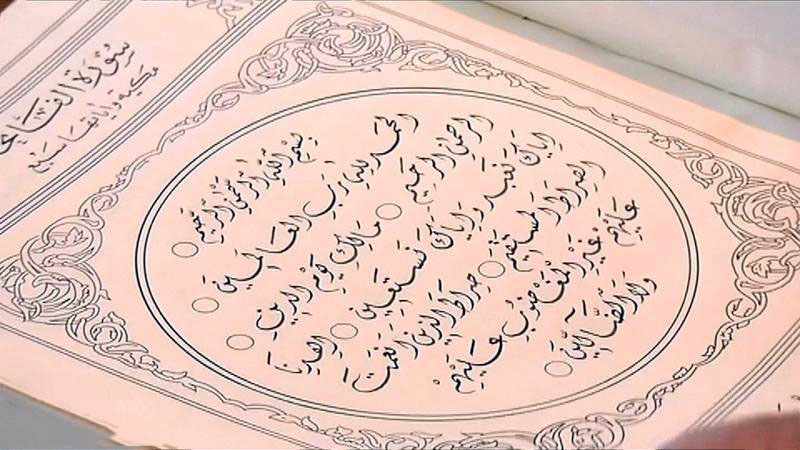 سورة الفاتح
مكية وآياتها سبع
بِسْمِ اللَّهِ الرَّحْمَنِ الرَّحِيمِ
الحَمْدُ لِلهِ رَبِّ العَالَمِينَ
الرَّحمنِ الرَّحِيمِ مَالِكِ يَوْمِ الدِّينِ
إيَّاكَ نَعْبُدُ وَإيَّاكَ نَسْتَعِينُ اهْدِنَا
الصِّرَاطَ المُسْتَقِيمَ صِرَاطَ الَّذِينَ انْعَمْتَ
عَلَيْهِمْ غَيْرِ الْمَغْضُوبِ عَلَيْهِمْ
وَلَا الضَّآلِّينَ